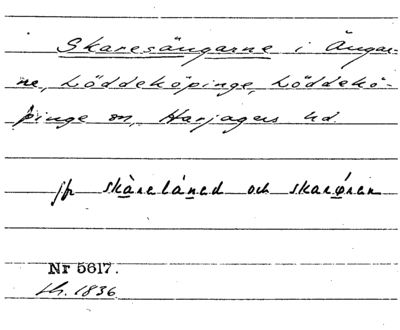 Skaresängarne i Ängar-
ne, Löddeköpinge, Löddekö-
pinge sn, Harjagers hd.
jfr skàrelåned och skarøren
Nr 5617.
th. 1836